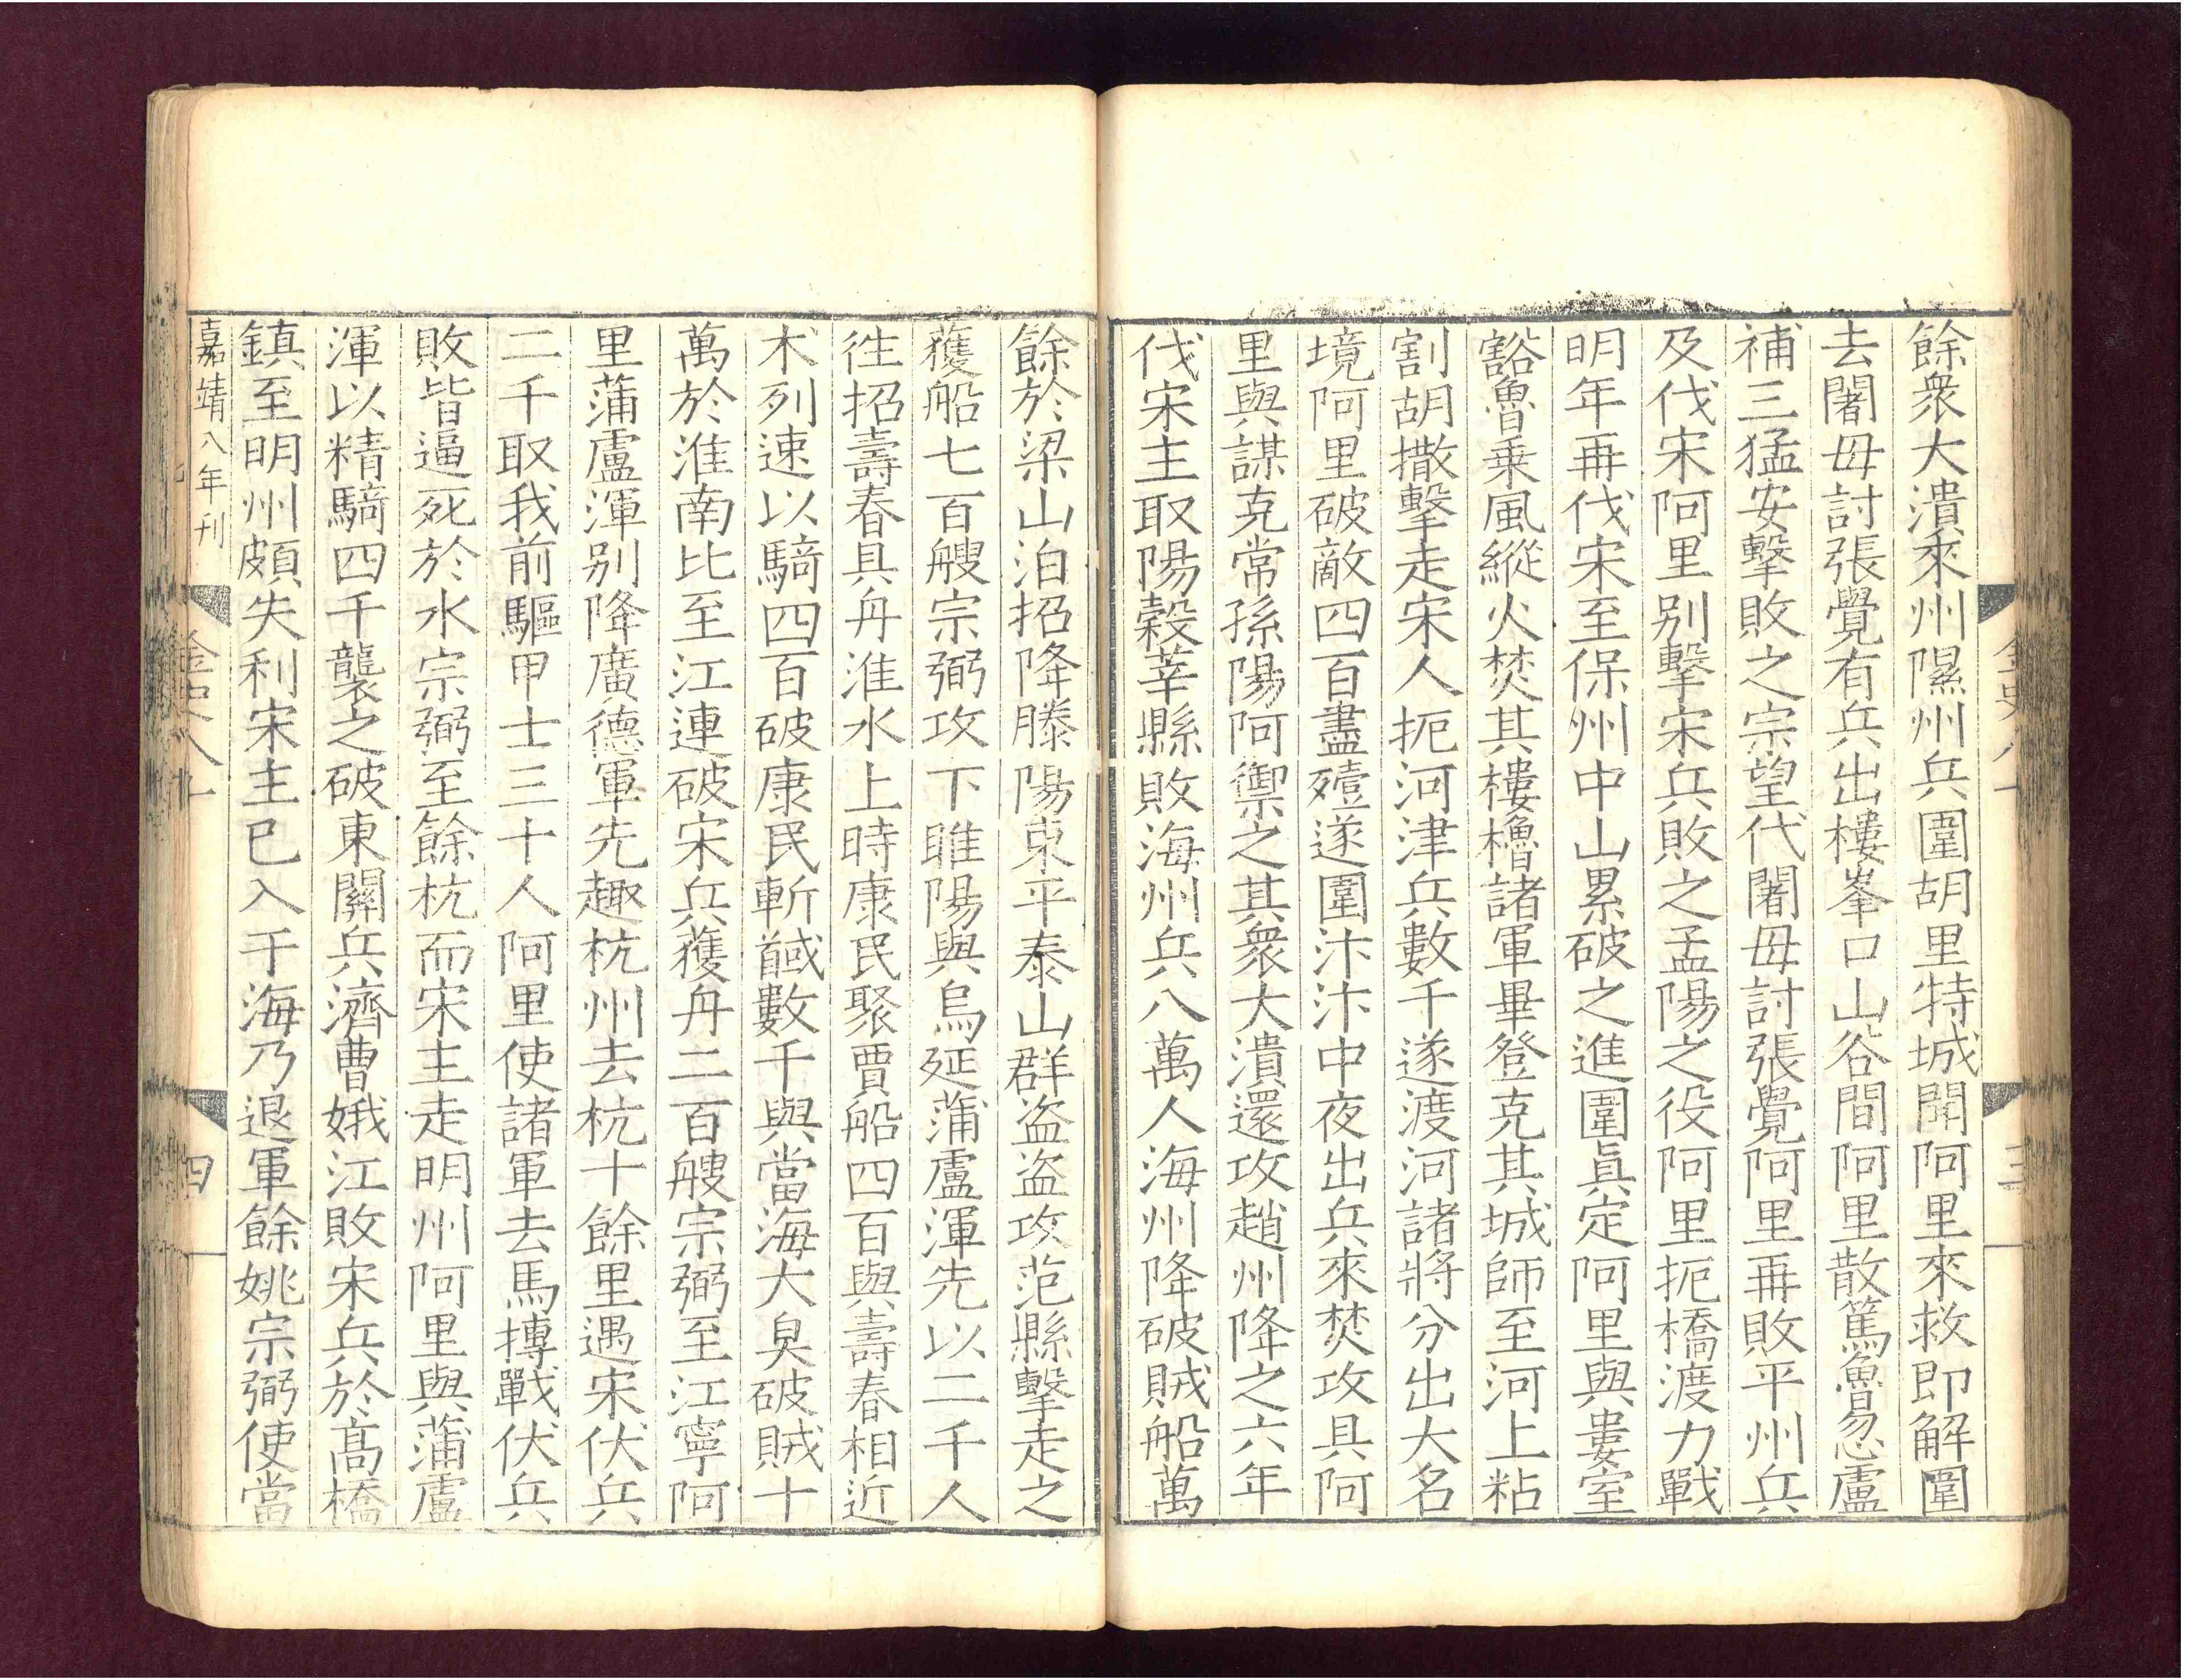 餘衆大潰來州隰州兵圍胡里特城聞阿里來救即解圍
去闍母討張覺有兵出樓峯口山谷間阿里散篤魯忽盧
補三猛安擊敗之宗望代闍母討張覺阿里再敗平州兵
及伐宋阿里别擊宋兵敗之孟陽之役阿里扼橋渡力戰
明年再伐宋至保州中山累破之進圍眞定阿里與婁室
豁魯乗風縱火焚其樓櫓諸軍畢登克其城師至河上粘
割胡撒擊走宋人扼河津兵數千遂渡河諸將分出大名
境阿里破敵四百盡殪遂圍汴汴中夜出兵來焚攻具阿
里與謀克常孫陽阿禦之其衆大潰還攻趙州降之六年
伐宋主取陽穀莘縣敗海州兵八萬人海州降破賊船萬
餘於梁山泊招降滕陽東平泰山群盜盜攻范縣擊走之
獲船七百艘宗弼攻下睢陽與烏延蒲盧渾先以二千人
徃招壽春具舟淮水上時康民聚賈船四百與壽春相近
朩列速以騎四百破康民斬馘數千與當海大臭破賊十
萬於淮南比至江連破宋兵獲舟二百艘宗弼至江寧阿
里蒲盧渾别降廣德軍先趣杭州去杭十餘里遇宋伏兵
二千取我前驅甲士三十人阿里使諸軍去馬搏戰伏兵
敗皆逼死於水宗弼至餘杭而宋主走明州阿里與蒲盧
渾以精騎四千襲之破東關兵濟曹娥江敗宋兵於髙橋
鎮至明州頗失利宋主巳入于海乃退軍餘姚宗弼使當
嘉靖八年刊
金史八十
三
金史八十
四